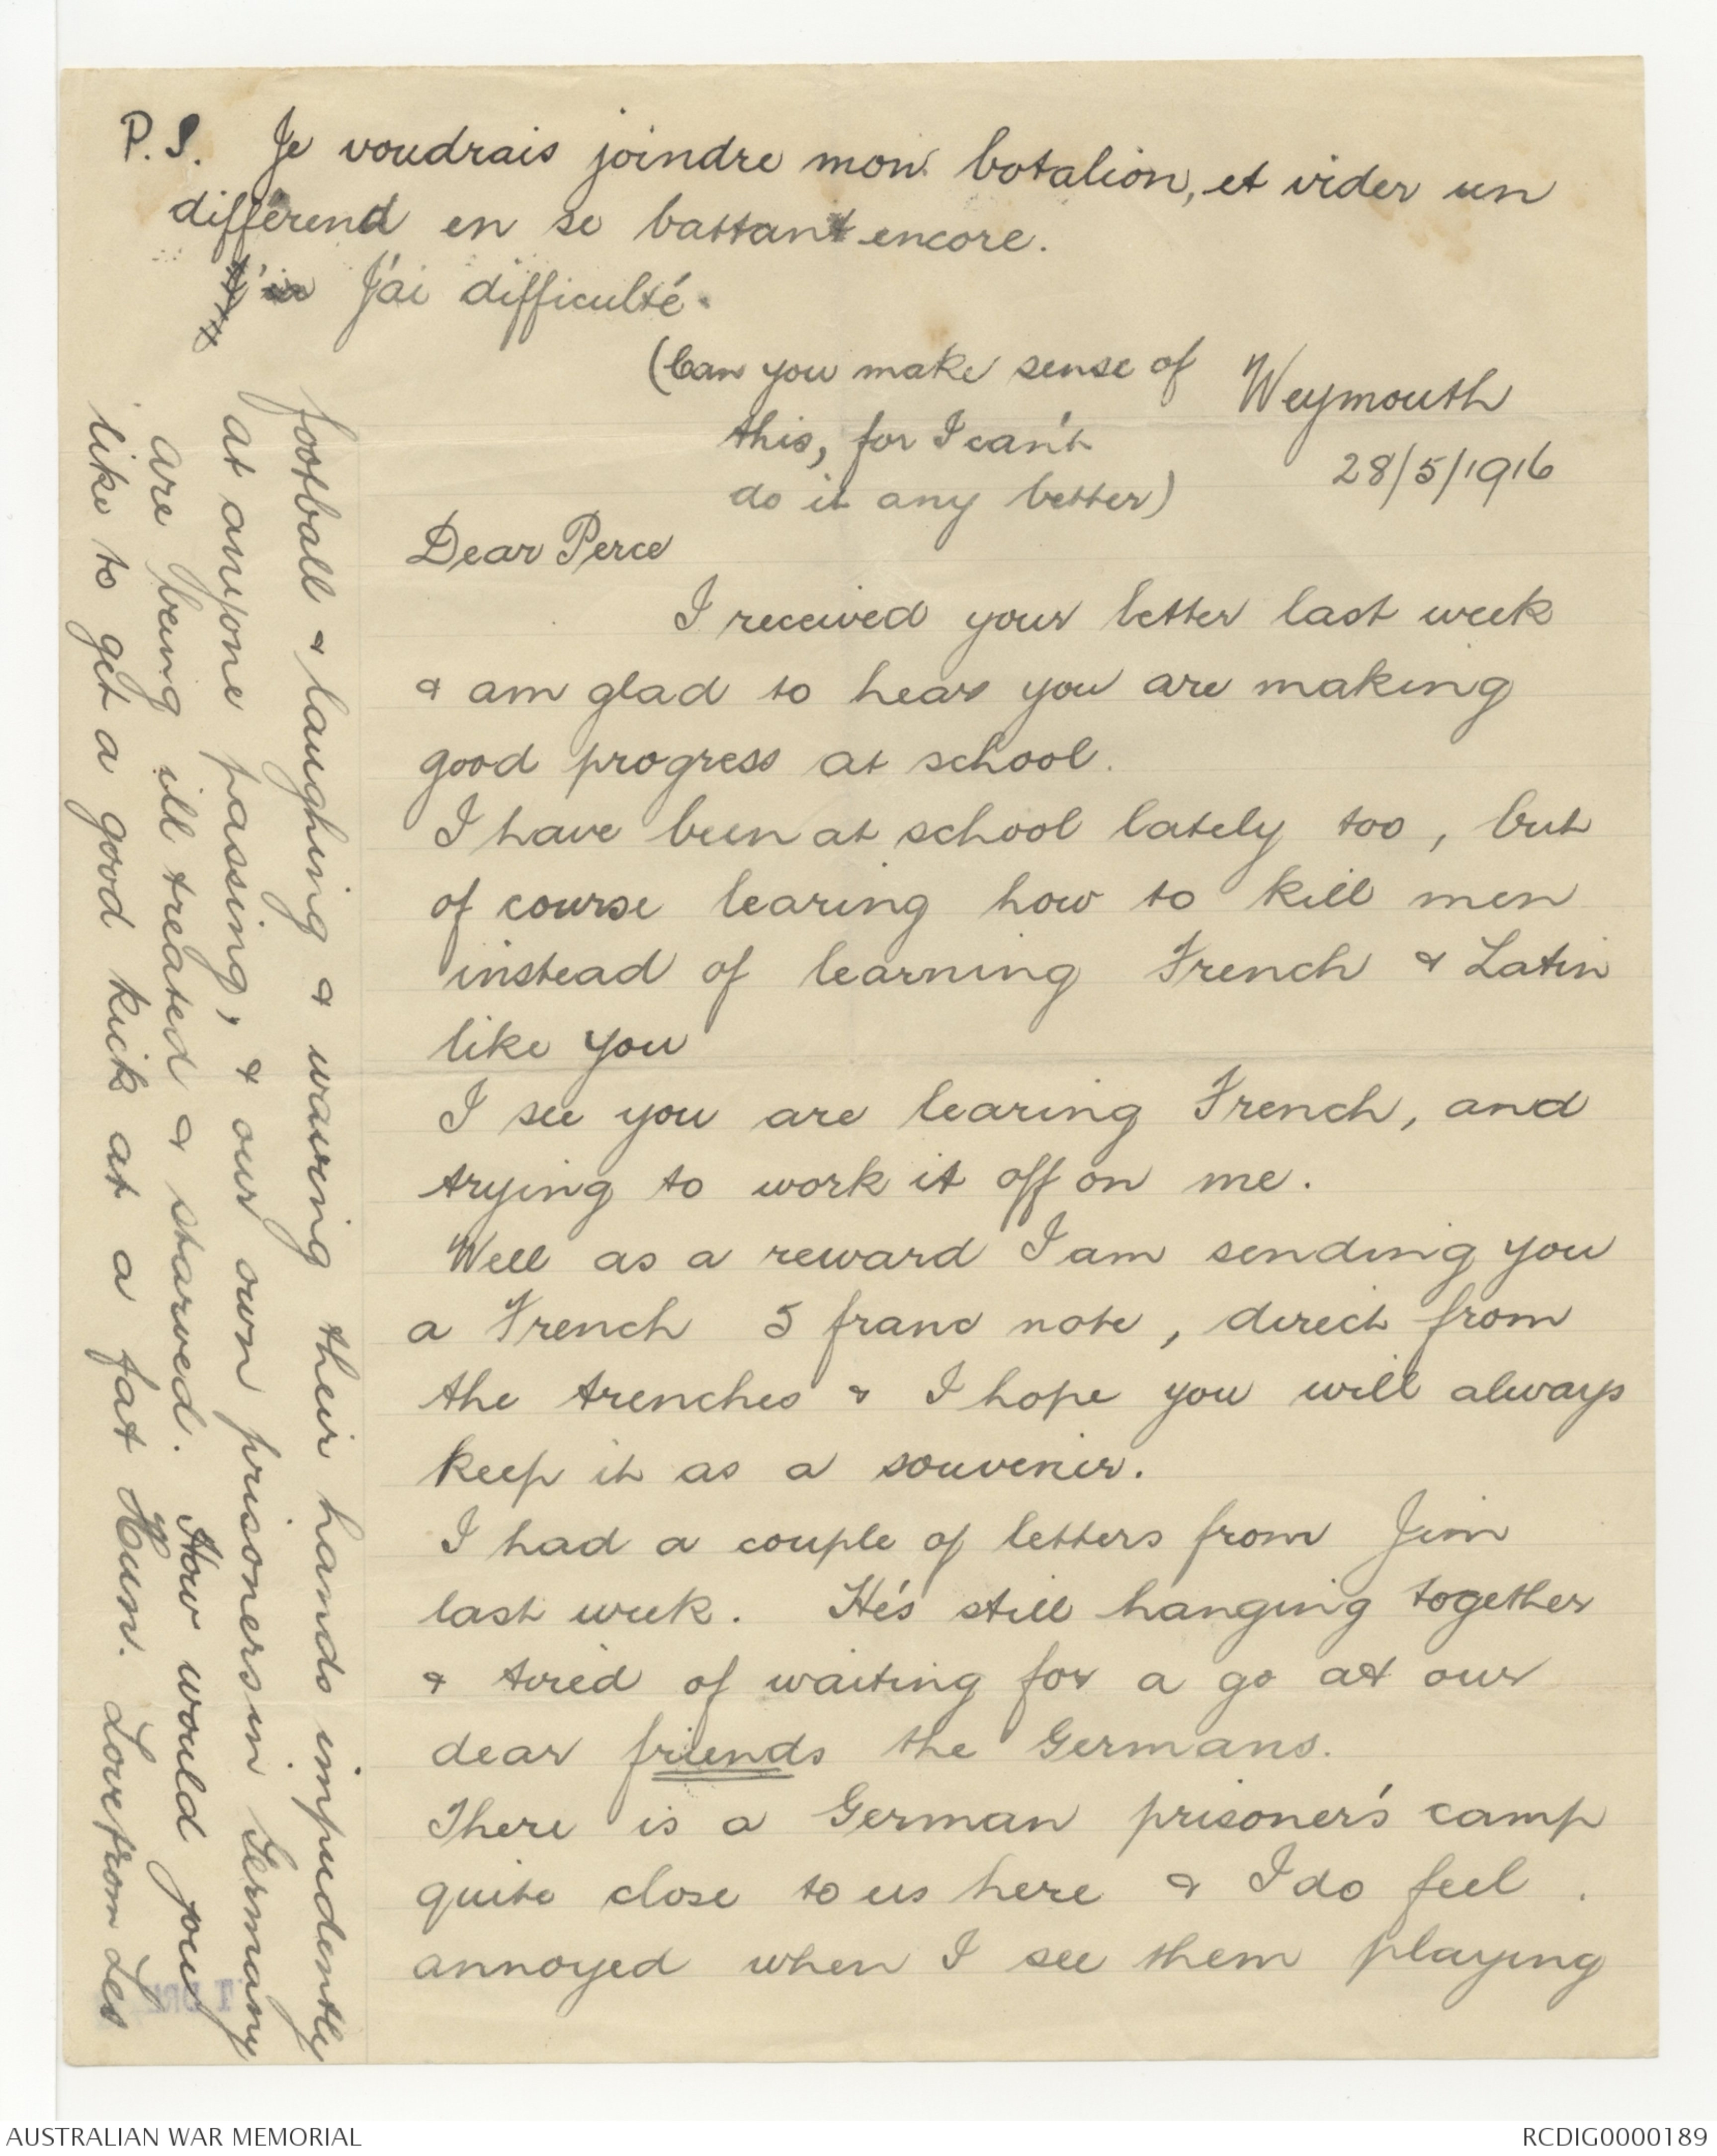 P.S. Je voudrais joindre mon botalion, et vider un
différend en se battant encore.
J'ai difficulté.
(Can you make sense of
this, for I can't
do it any better)
Weymouth
28/5/1916
Dear Perce
I received your letter last week
& am glad to hear you are making
good progress at school.
I have been at school lately too, but
of course learing how to kill men
instead of learning French & Latin
like you
I see you are learing French, and
trying to work it off on me.
Well as a reward I am sending you
a French 5 franc note, direct from
the trenches & I hope you will always
keep it as a souvenir.
I had a couple of letters from Jim
last week. He's still hanging together
& tired of waiting for a go at our
dear friends the Germans.
There is a German prisoner's camp
quite close to us here & I do feel
annoyed when I see them playing
football & laughing & waving their hands impudently
at anyone passing, & our own prisoners in Germany
are being ill treated & starved. How would you
like to get a good kick at a fat Hun. Love from Les
AUSTRALIAN WAR MEMORIAL
RCDIG0000189